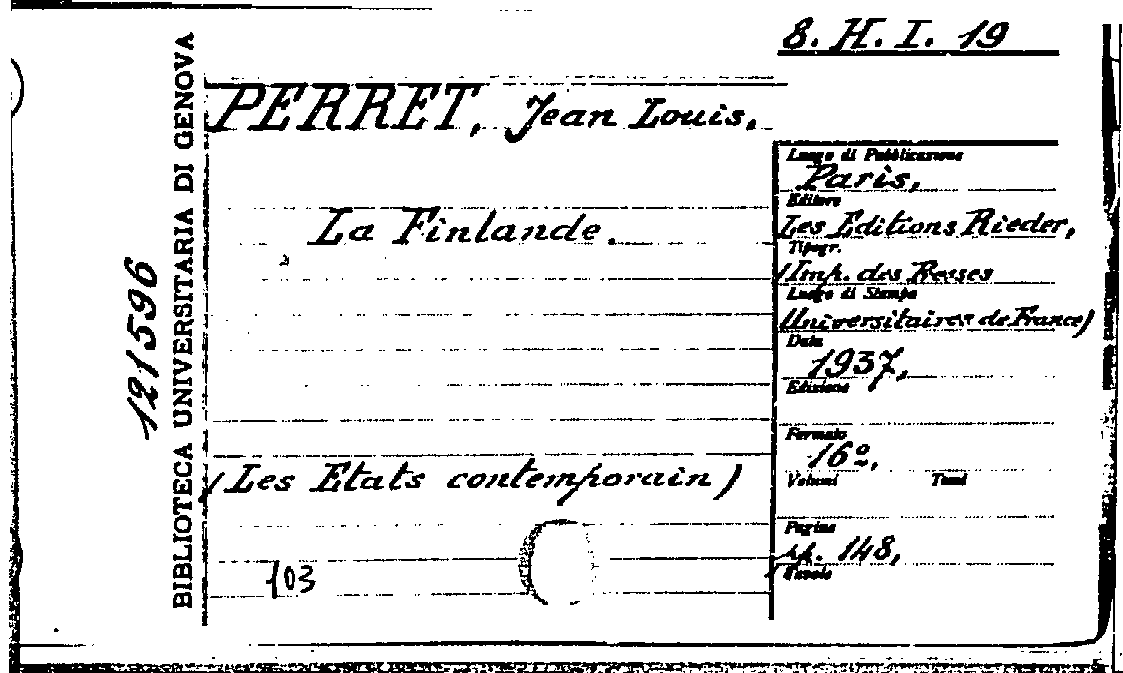 8. H. I. 19
PERRET, Jean Louis.
La Finlande.
(Les Etats contemporain)
103
121596
BIBLIOTECA UNIVERSITARIA DI GENOVA
Luogo di Pubblicazione
Paris,
Editore
Les Editions Rieder,
Tipogr.
(Imp. des Presses
Luogo di Stampa
Universitaires de France)
Data
1937,
Edizione
Formato
16º,
Volumi Tomi
Pagine
pp. 148,
Tavole